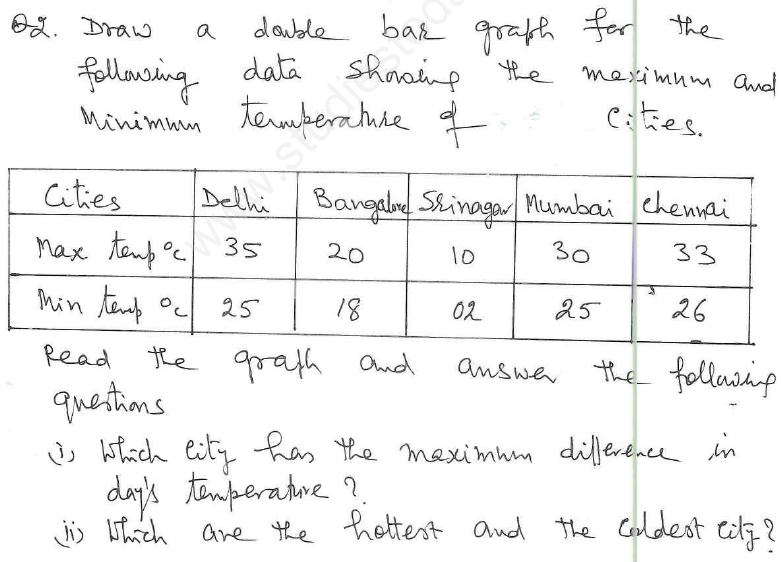 Q2. Draw a double bar graph for the
following data showing the maximum and
Minimum temperature of cities.
Cities Delhi Bangalore Srinagar Mumbai Chennai
Max temp °c 35 20 10 30 33
Min temp °c 25 18 02 25 26
Read the graph and answer the following
questions
i) Which city has the maximum difference in
day's temperature ?
ii) Which are the hottest and the coldest city?